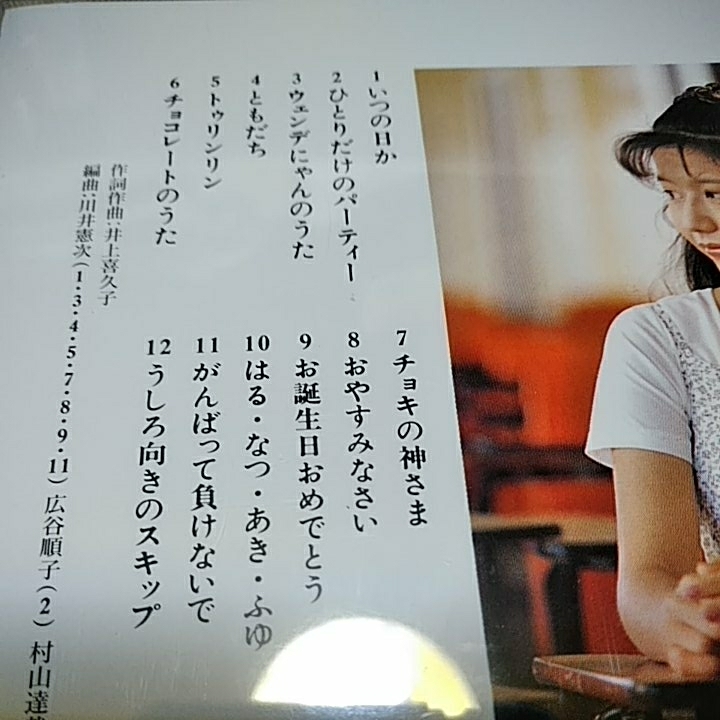 1 いつの日か
2 ひとりだけのパーティー
3 ウェンデにゃんのうた
4 ともだち
5 トゥリンリン
6 チョコレートのうた
7 チョキの神さま
8 おやすみなさい
9 お誕生日おめでとう
10 はる・なつ・あき・ふゆ
11 がんばって負けないで
12 うしろ向きのスキップ
作詞作曲:井上喜久子
編曲:川井憲次(1・3・4・5・7・8・9・11) 広谷順子(2) 村山達